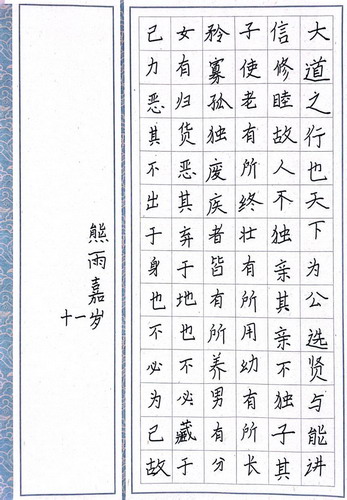 大道之行也天下为公选贤与能讲
信修睦故人不独亲其亲不独子其
子使老有所终壮有所用幼有所长
矜寡孤独废疾者皆有所养男有分
女有归货恶其弃于地也不必藏于
己力恶其不出于身也不必为己故
熊雨嘉
十一岁